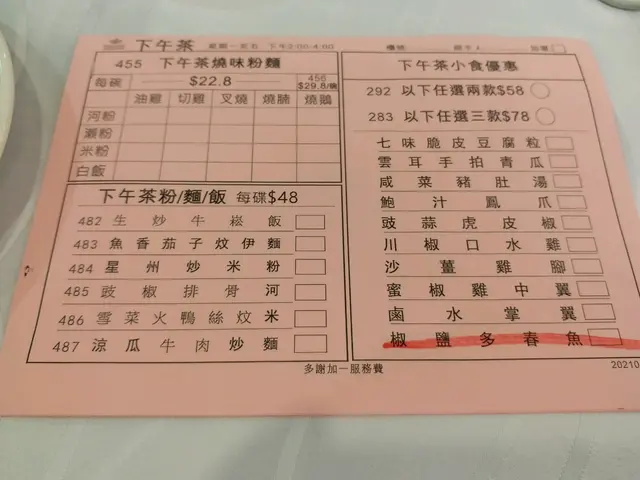 下午茶
455 下午茶燒味粉麵
每碗 $22.8 456 $29.8/碗
油雞 切雞 叉燒 燒腩 燒鵝
河粉
瀨粉
米粉
白飯
下午茶粉/麵/飯 每碟$48
482 生炒牛崧飯
483 魚香茄子炆伊麵
484 星州炒米粉
485 豉椒排骨河
486 雪菜火鴨絲炆米
487 涼瓜牛肉炒麵
下午茶小食優惠
292 以下任選兩款$58
283 以下任選三款$78
七味脆皮豆腐粒
雲耳手拍青瓜
咸菜豬肚湯
鮑汁鳳爪
豉蒜虎皮椒
川椒口水雞
沙薑雞腳
蜜椒雞中翼
鹵水掌翼
椒鹽多春魚
多謝加一服務費
20210